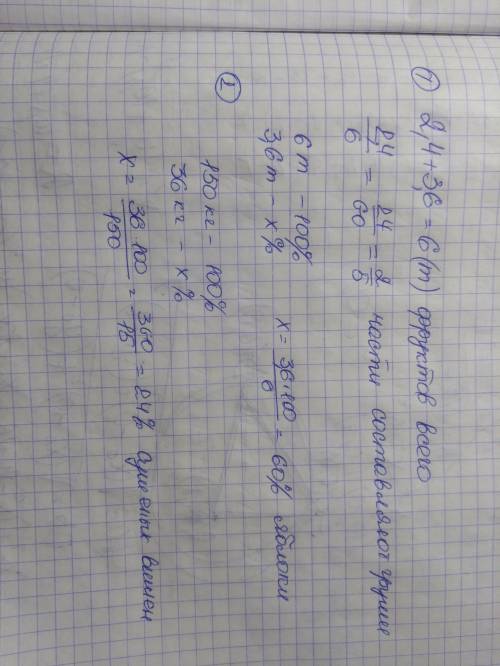 ① 2,4 + 3,6 = 6 (т) фруктов всего
2,4/6 = 24/60 = 2/5 части составляют груши
6 т – 100%
3,6 т – х%
х = 3,6·100/6 = 60% яблоки
② 150 кг – 100%
36 кг – х%
х = 36·100/150 = 360/15 = 24% сушеных вишен